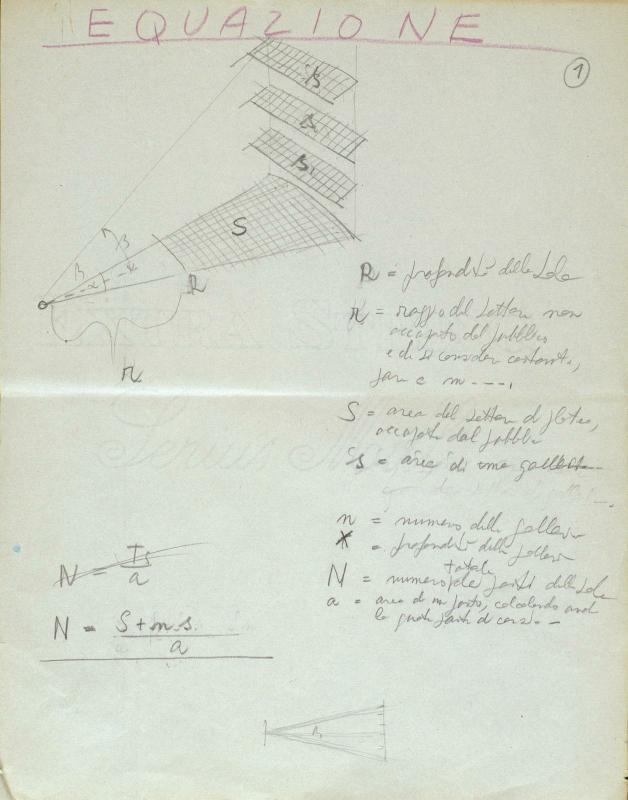 EQUAZIONE
1
s
s
s1
S
β
β
α
R
r
R = profondità della Sala
r = raggio del settore non
occupato dal pubblico
e di si consider costante,
pari a m ----,
S = area del settore di platea,
occupata dal pubblico
s = area di una galleria
n = numero delle gallerie
x = profondità delle gallerie
totale
N = numero dei posti della Sala
a = area di un posto, calcolando anche
la quota parte di corsie -
N = Ts / a
N = S + n s / a